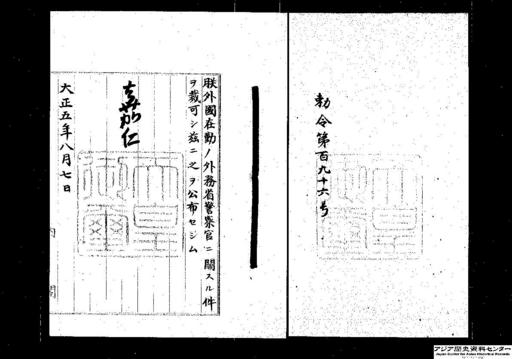 勅令第百九十六号
朕外國在勤ノ外務省警察官ニ關スル件
ヲ裁可シ玆ニ之ヲ公布セシム
嘉仁
天皇御璽
大正五年八月七日
内閣
アジア歴史資料センター
Japan Center for Asian Historical Records